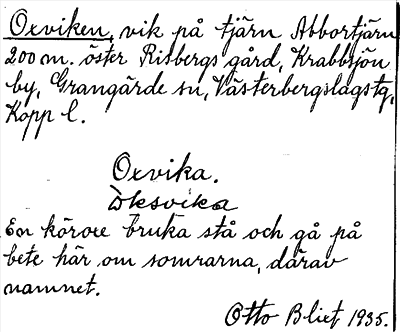 Oxviken, vik på tjärn Abbortjärn
200 m. öster Risbergs gård, Krabbsjön
by, Grangärde sn, Västerbergslagstg,
Kopp l.
Oxvika.
Oksvika
En köroxe bruka stå och gå på
bete här om somrarna, därav
namnet.
Otto Blixt 1935.